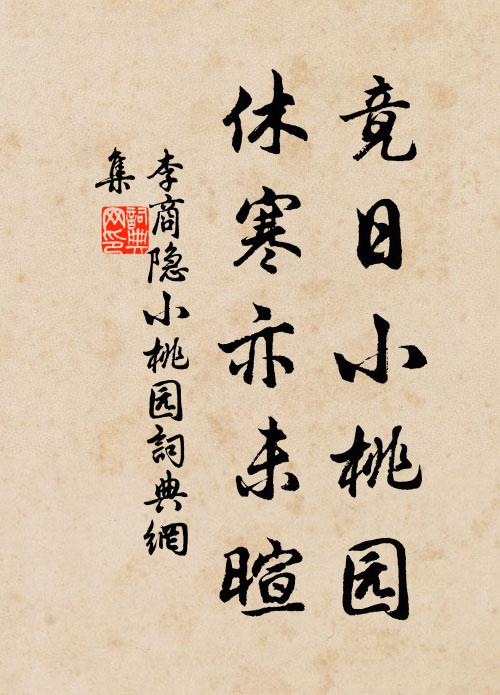 竟日小桃园
休寒亦未暄
李商隐小桃园詞典網
集
詞典
网印